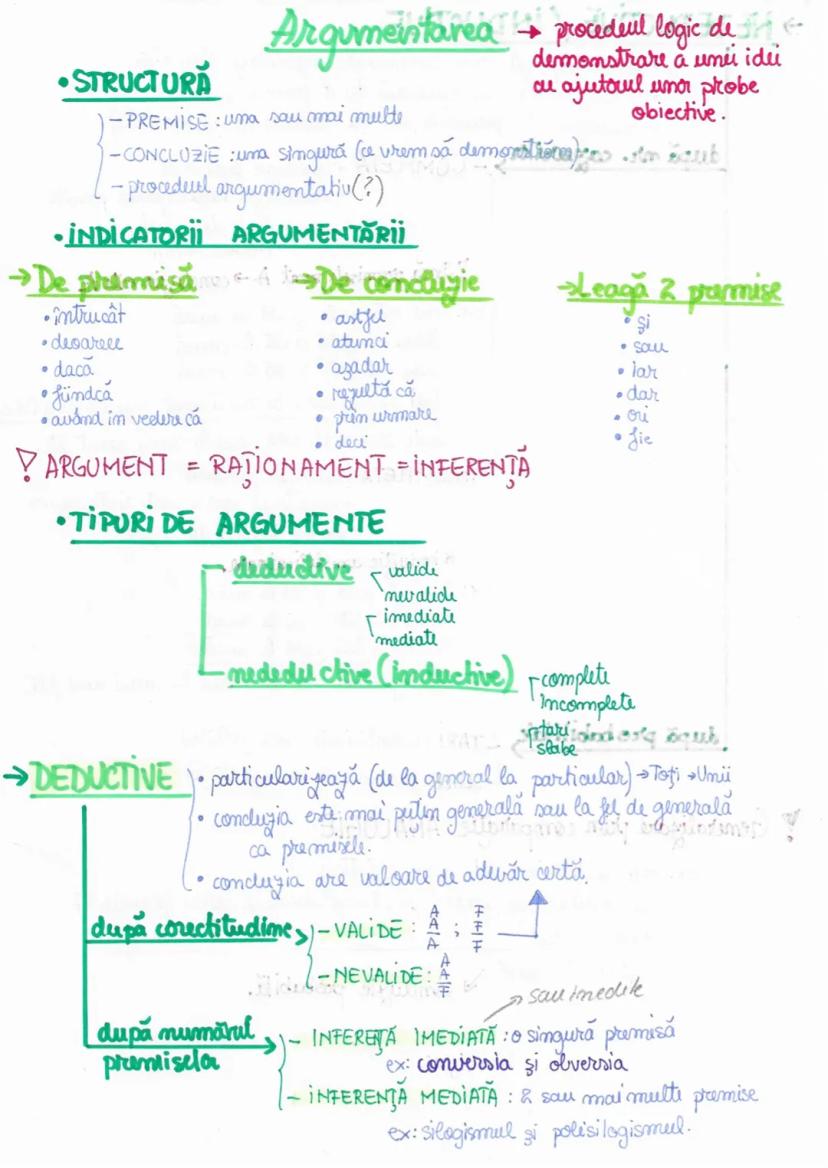 Argumentarea → procedeul logic de
demonstrare a unei idei
cu ajutorul unor probe
obiective.
• STRUCTURĂ
- PREMISE : una sau mai multe
- CONCLUZIE : una singură (ce vrem să demonstrăm)
- procedeul argumentativ (?)
• INDICATORII ARGUMENTĂRII
→ De premisă
• întrucât
• deoarece
• dacă
• fiindcă
• având in vedere că
→ De concluzie
• astfel
• atunci
• așadar
• rezultă că
• prin urmare
• deci
→ Leagă 2 premise
• și
• sau
• iar
• dar
• ori
• fie
! ARGUMENT = RAȚIONAMENT = INFERENȚĂ
• TIPURI DE ARGUMENTE
deductive
valide
nevalide
imediate
mediate
nedeductive (inductive)
complete
incomplete
tari
slabe
→ DEDUCTIVE
• particularizează (de la general la particular) → Toți → Unii
• concluzia este mai puțin generală sau la fel de generală
ca premisele.
• concluzia are valoare de adevăr certă.
după corectitudine
- VALIDE : A A A ; F F F
- NEVALIDE : A A F
sau imedite
după numărul
premiselor
- INFERENȚĂ IMEDIATĂ : o singură premisă
ex: conversia și obversia
- INFERENȚĂ MEDIATĂ : 2 sau mai multe premise
ex: silogismul și polisilogismul.